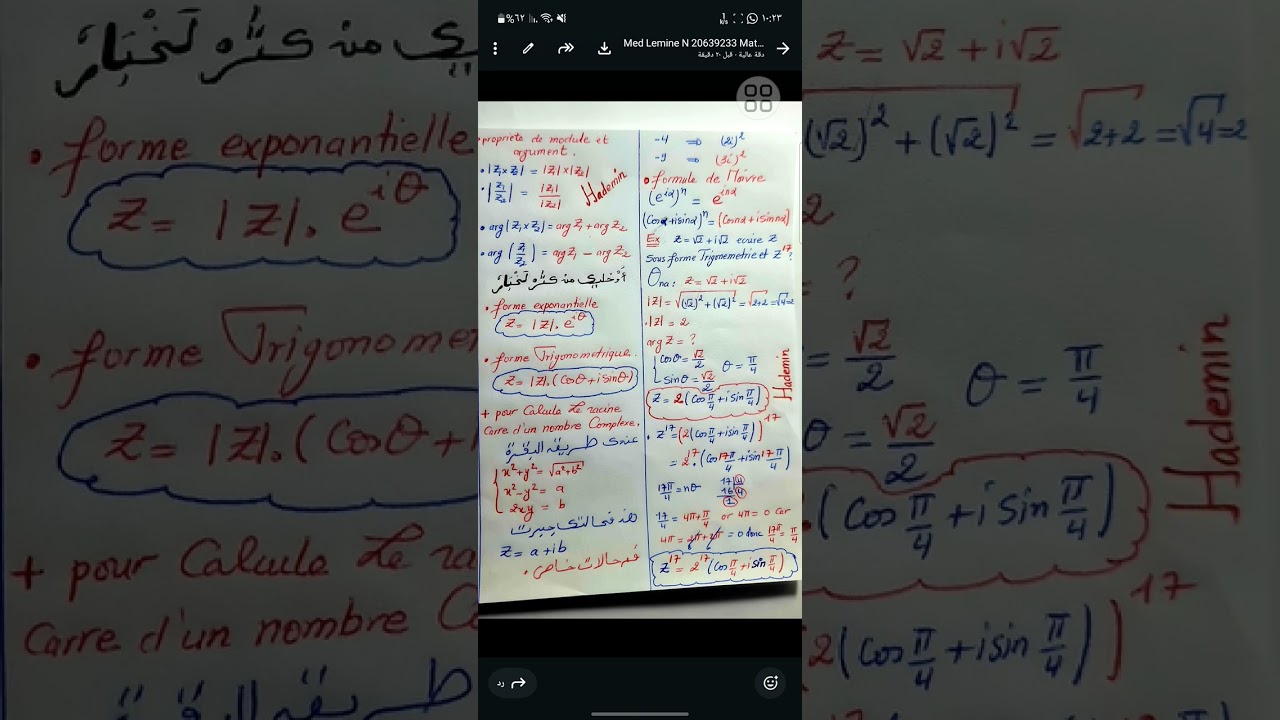 ١٠:٢٣
٪٦٢
Med Lemine N 20639233 Mat...
دقة عالية · قبل ٢٠ دقيقة
• propriete de module et
argument.
• |Z₁×Z₂| = |Z₁|×|Z₂|
• |Z₁/Z₂| = |Z₁|/|Z₂|
Hademin
• arg|Z₁×Z₂| = arg Z₁ + arg Z₂
• arg(Z₁/Z₂) = arg Z₁ − arg Z₂
من
• forme exponantielle
Z = |Z|.e^iθ
• forme Trigonometrique.
Z = |Z|.(Cosθ + i sinθ)
+ pour Calcule Le racine
Carre d'un nombre Complexe.
عندك طريقة
x²+y² = √(a²+b²)
x²−y² = a
2xy = b
Z = a+ib
حالات خاص.
−4 ⟹ (2i)²
−9 ⟹ (3i)²
• formule de Moivre
(e^iα)ⁿ = e^inα
(Cosα+isinα)ⁿ = (Cosnα+isinnα)
Ex Z = √2 + i√2 ecrire Z
Sous forme Trigonemetrie et Z¹⁷?
Ona: Z = √2 + i√2
|Z| = √((√2)²+(√2)²) = √(2+2) = √4 = 2
• |Z| = 2
arg Z = ?
cosθ = √2/2
sinθ = √2/2
θ = π/4
Hademin
Z = 2(Cos π/4 + i sin π/4)
• Z¹⁷ = (2(Cos π/4 + i sin π/4))¹⁷
= 2¹⁷.(Cos 17π/4 + i sin 17π/4)
17π/4 = nθ
17 4
16 4
1
17/4 = 4π + π/4 or 4π = 0 Car
4π = 2π + 2π = 0 donc 17π/4 = π/4
Z¹⁷ = 2¹⁷(Cos π/4 + i sin π/4)
رد